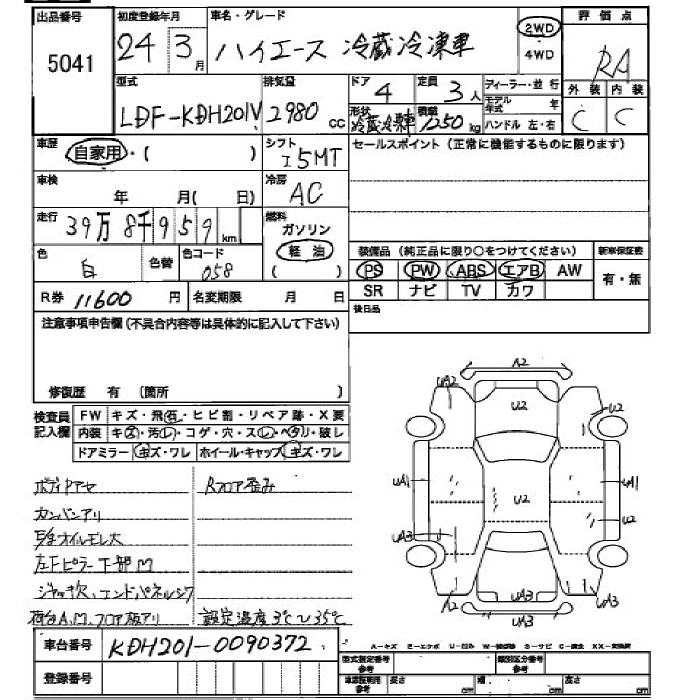 出品番号 5041
初度登録年月 24 3月
車名・グレード ハイエース 冷蔵冷凍車
2WD
4WD
評価点 RA
外装 C 内装 C
型式 LDF-KDH201V
排気量 2980 cc
ドア 4
定員 3人
形状 冷蔵冷凍車
積載 1250 kg
ディーラー・並行
モデル年式 年
ハンドル 左・右
車歴 自家用・( )
シフト I5MT
セールスポイント (正常に機能するものに限ります)
車検 年 月( 日)
冷房 AC
走行 39万8千959km
燃料 ガソリン
軽油
( )
色 白 色替 色コード 058
装備品 (純正品に限り○をつけてください) 新車保証書
PS PW ABS エアB AW
SR ナビ TV カワ 有・無
R券 11600円 名変期限 月 日
後日品
注意事項申告欄 (不具合内容等は具体的に記入して下さい)
修復歴 有 (箇所 )
検査員記入欄
FW キズ・飛石・ヒビ割・リペア跡・X要
内装 キズ・汚レ・コゲ・穴・スレ・ヘタリ・破レ
ドアミラー キズ・ワレ ホイール・キャップ キズ・ワレ
ボディPアセ Rフロア歪み
カンバンアリ
E/gオイルモレ大
左Fピラー下部M
ジャッキ欠、エンドパネルシワ
荷台A,M,フロア板アリ 設定温度3℃〜35℃
A2
UA2
U2
U2
UA1
U2
UA1
U2
UA3
A2
UA3
UA3
車台番号 KDH201-0090372
A-キズ E-エクボ U-凹み W-補修跡 S-サビ C-腐食 XX-交換済
登録番号
型式指定番号 参考
類別区分番号 参考
車庫証明用 参考 長さ cm 幅 cm 高さ cm